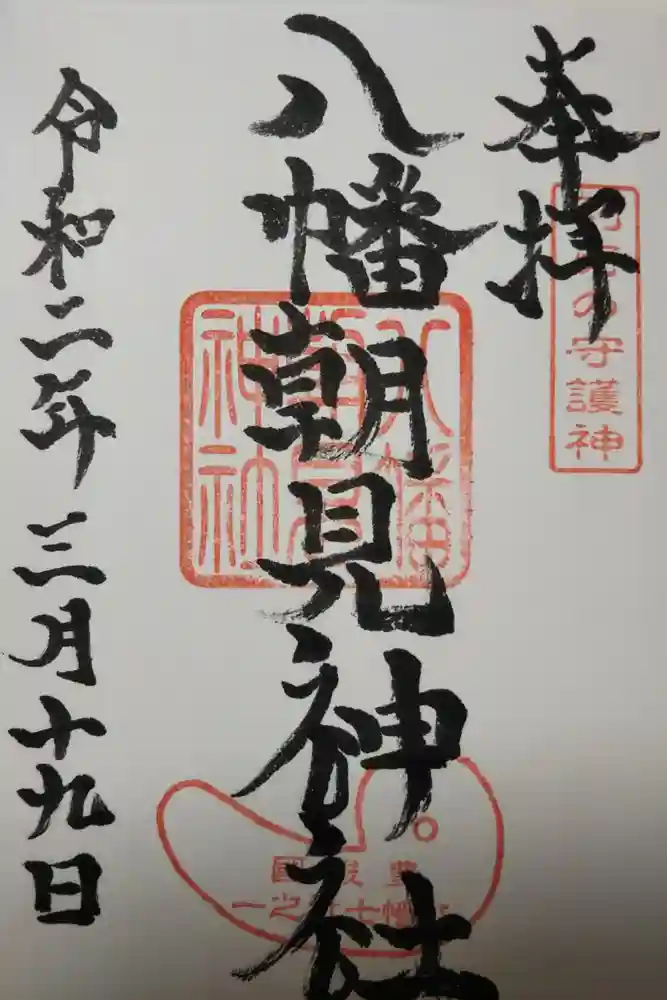 奉拝
の守護神
八幡朝見神社
八幡朝見神社
豊後國
八幡七社之一
令和二年三月十九日